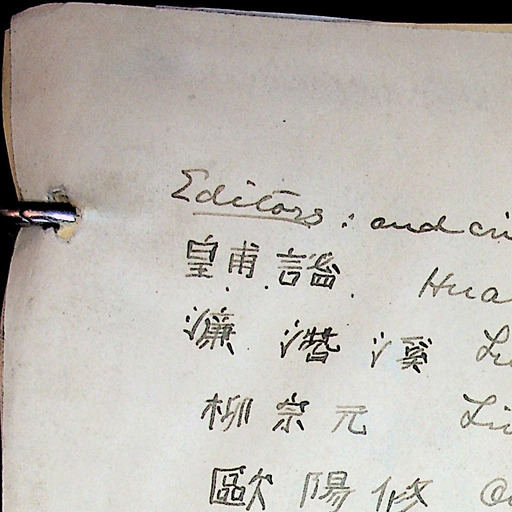 Editors : and cri
皇甫謐 Hua
濂潛溪 Li
柳宗元 Liu
歐陽修 Ou